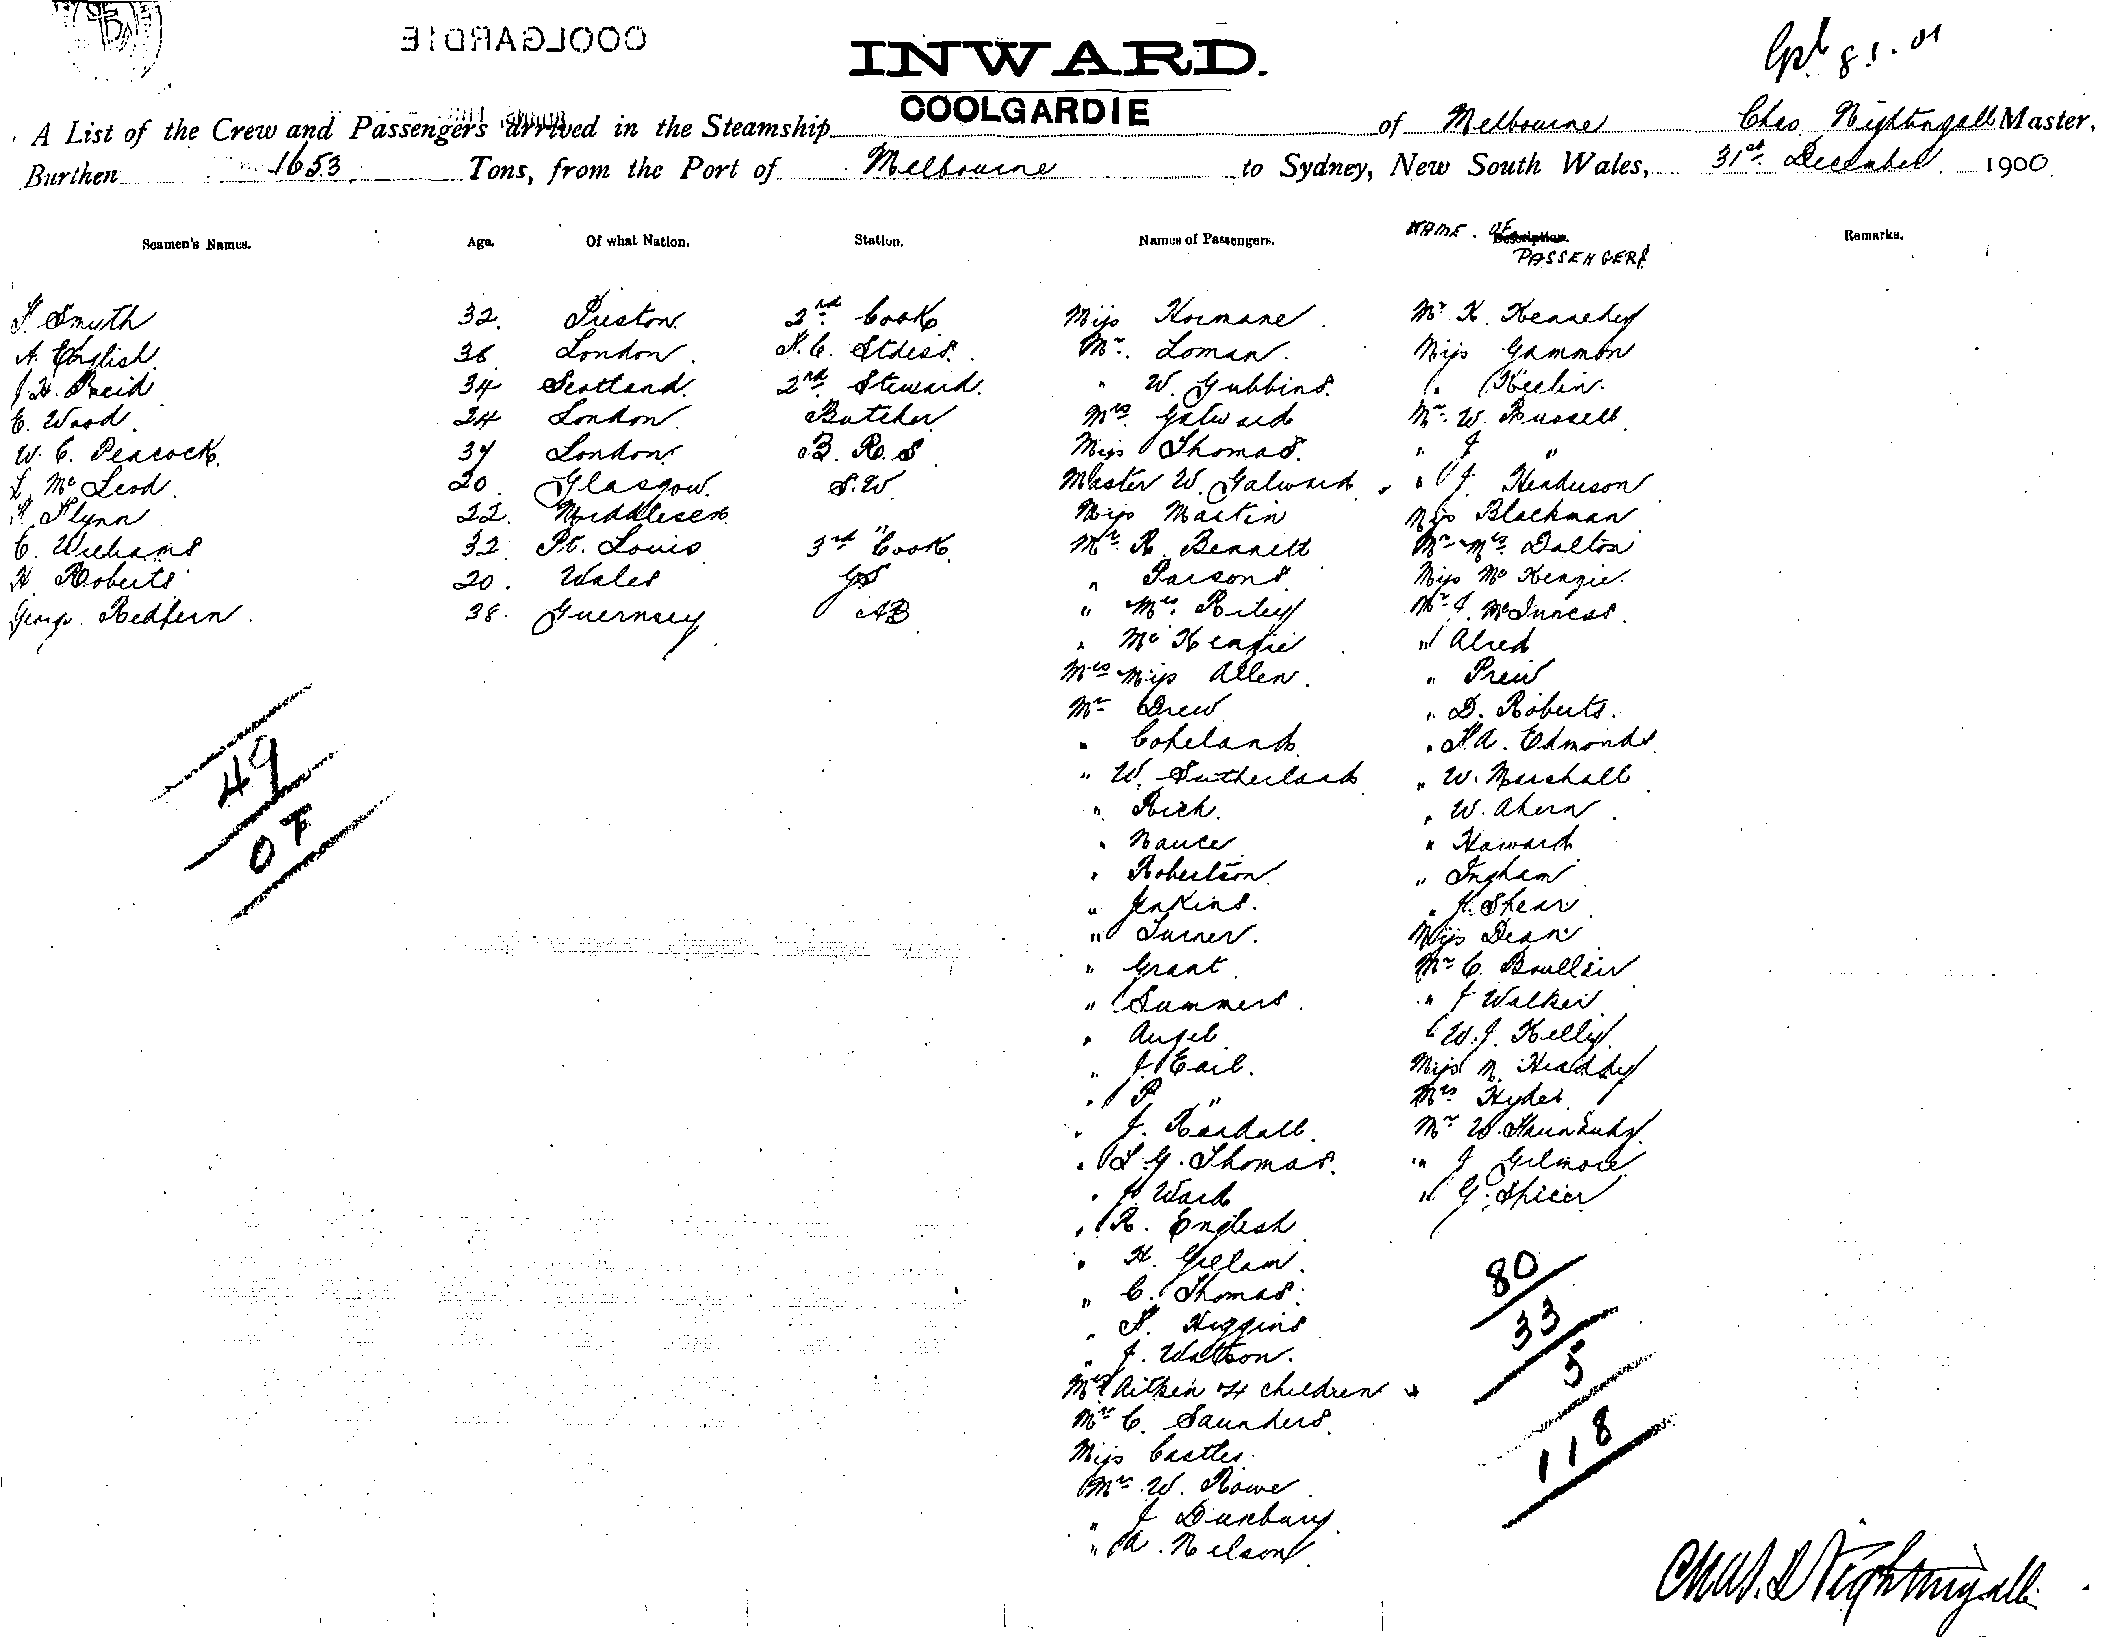 COOLGARDIE
INWARD.
8.1.01
COOLGARDIE
A List of the Crew and Passengers arrived in the Steamship COOLGARDIE of Melbourne Chas Nightingall Master,
Burthen 1653 Tons, from the Port of Melbourne to Sydney, New South Wales, 31st December 1900
Seamen's Names. Age. Of what Nation. Station. Names of Passengers. NAME. OF Description. Remarks.
PASSENGERS
Smyth 32. Preston. 2nd Cook Miss Hormane. Mr K. Kennedy
A. English 36 London. F.C. Stdess. Mr. Loman. Miss Gammon
J H. Reid 34 Scotland. 2nd Steward. " W. Gubbins. " Heelin.
E. Wood. 24 London. Butcher Mrs. Galward Mr. W. Russell
W. C. Peacock. 37 London B. R. S Miss Thomas. " J "
L Mc Leod. 20. Glasgow. S.W Master W. Galward " J. Henderson
Flynn 22. Middlesex " Miss Martin Miss Blackman
C. Williams 32 St. Louis 3rd Cook Mr R. Bennett Mr Mrs. Dalton
H Roberts 20. Wales GS " Parsons Miss Mc Kenzie.
George Redfern. 38. Guernsey AB " Mrs. Riley Mr J. McInness.
" Mc Kenzie " Alred
Mrs Miss Allen. "
Mr Drew " D. Roberts.
" Copeland " A. Edmonds
" W. Sutherland " W. Marshall
" Rich. " W. Ahern
" Nance " Howard
" Robertson " Ingham
" Jenkins. " J. Shear
" Turner. Miss Dean
" Grant Mr C.
" Summers. " J Walker
" Angel " W. J. Kelly
" J. Earl. Miss N.
" P " Mrs Hyder
" J. Randall. Mr W.
" L. G. Thomas. " J Gilmore
" J. Ward " G. Spicer
" R. English
" H. Gillam.
" C. Thomas.
" Higgins
" J. Watson.
Mrs Aitken & 4 children
Mr C. Saunders
Miss Castles
Mr W. Rowe
" J Danbury
" A. Nelson
49
07
80
33
5
118
Chas. D Nightingall